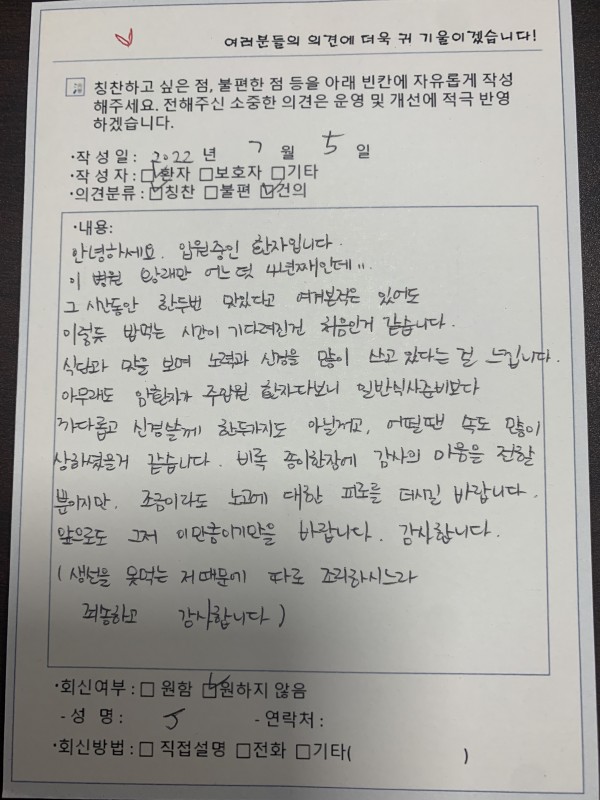 여러분들의 의견에 더욱 귀 기울이겠습니다!
칭찬하고 싶은 점, 불편한 점 등을 아래 빈칸에 자유롭게 작성
해주세요. 전해주신 소중한 의견은 운영 및 개선에 적극 반영
하겠습니다.
·작 성 일 : 2022 년 7 월 5 일
·작 성 자 : □환자 □보호자 □기타
·의견분류 : □칭찬 □불편 □건의
·내용:
안녕하세요. 입원중인 환자입니다.
이 병원 왕래만 어느덧 4년째인데..
그 시간동안 한두번 맛있다고 여겨본적은 있어도
이렇듯 밥먹는 시간이 기다려진건 처음인거 같습니다.
식단과 맛을 보며 노력과 신경을 많이 쓰고 있다는 걸 느낍니다.
아무래도 암환자가 주입원 환자다보니 일반식사준비보다
까다롭고 신경쓸게 한두가지도 아닐꺼고, 어떨땐 속도 많이
상하셨을거 같습니다. 비록 종이한장에 감사의 마음을 전할
뿐이지만. 조금이라도 노고에 대한 피로를 더시길 바랍니다.
앞으로도 그저 이만큼이기만을 바랍니다. 감사합니다.
(생선을 못먹는 저때문에 따로 조리하시느라
죄송하고 감사합니다)
·회신여부 : □ 원함 □원하지 않음
- 성 명 : - 연락처 :
·회신방법 : □ 직접설명 □전화 □기타( )